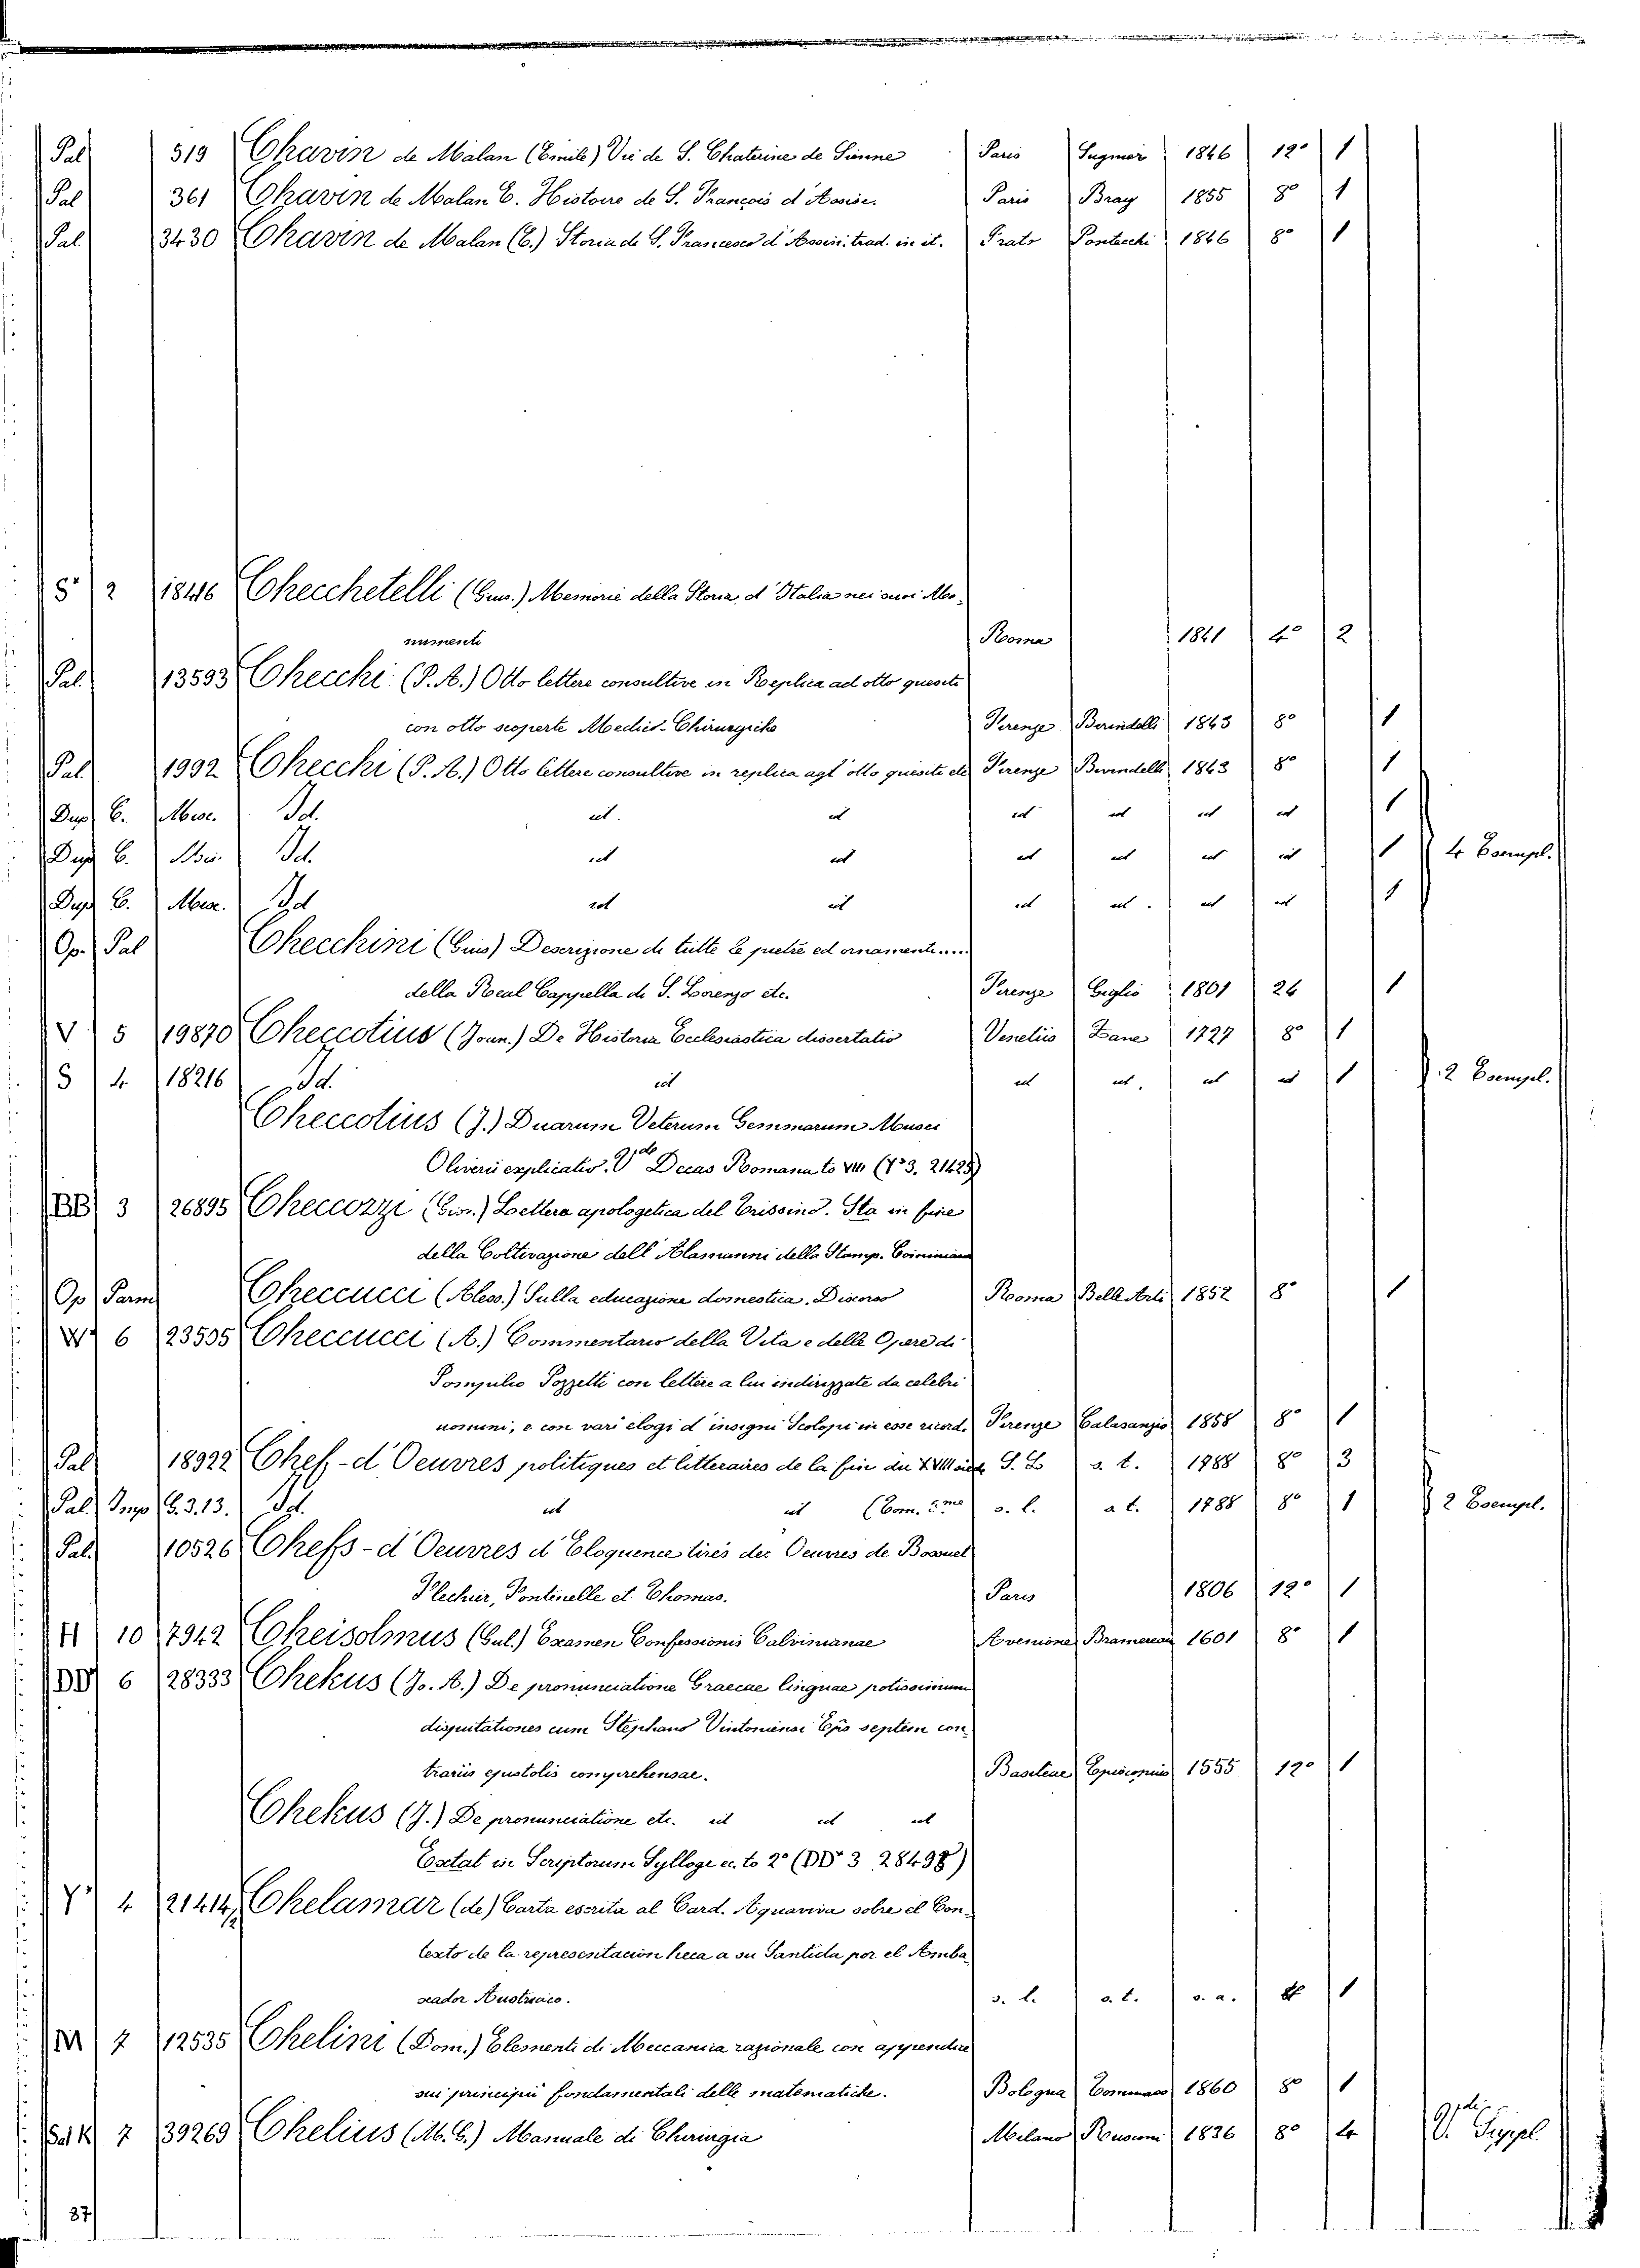 Pal 519 Chavin de Malan (Emile) Vie de S. Chaterine de Sienne Paris 1846 12° 1
Pal 361 Chavin de Malan E. Histoire de S. François d'Assise. Paris Bray 1855 8° 1
Pal. 3430 Chavin de Malan (E.) Storia di S. Francesco d'Assisi. trad. in it. Prato Pontecchi 1846 8° 1
S" 2 18446 Checchetelli (Gius.) Memorie della Storia d'Italia nei suoi Mo-
numenti Roma 1841 4° 2
Pal. 13593 Checchi (P. A.) Otto lettere consultive in Replica ad otto quesiti
con otto scoperte Medico-Chirurgiche Firenze Berindelli 1843 8° 1
Pal 1992 Checchi (P. A.) Otto lettere consultive in replica agl'otto quesiti etc Firenze Berindelli 1843 8° 1
Dup E. Misc. Id. id. id id id id id 1
Dup E. Misc. Id. id id id id id id 1 4 Esempl.
Dup E. Misc. Id id id id id. id id 1
Op. Pal Checchini (Gius) Descrizione di tutte le pietre ed ornamenti....
della Real Cappella di S. Lorenzo etc. Firenze Giglio 1801 24 1
V 5 19870 Checcotius (Joan.) De Historia Ecclesiastica dissertatio Venetiis Zane 1727 8° 1
S 4 18216 Id. id id id. id id 1 2 Esempl.
Checcotius (J.) Duarum Veterum Gemmarum Musei
Oliverii explicatio. V.de Decas Romana to VIII (Y° 3. 21425)
BB 3 26895 Checcozzi (Gio.) Lettera apologetica del Trissino. Sta in fine
della Coltivazione dell'Alamanni della Stamp. Cominiana
Op Parm Checcucci (Aless.) Sulla educazione domestica. Discorso Roma Belle Arti 1852 8° 1
W 6 23505 Checcucci (A.) Commentario della Vita e delle Opere di
Pompilio Pozzetti con lettere a lui indirizzate da celebri
uomini, e con vari elogi d'insigni Scolopi in esse ricord. Firenze Calasanzio 1858 8° 1
Pal 18922 Chef-d'Oeuvres politiques et litteraires de la fin du XVIII siècle S. L s. t. 1788 8° 3
Pal. Imp G. 3. 13. Id. id id (Tom. 3.me s. l. a t. 1788 8° 1 2 Esempl.
Pal. 10526 Chefs-d'Oeuvres d'Eloquence tirés des Oeuvres de Bossuet
Flechier, Fontenelle et Thomas. Paris 1806 12° 1
H 10 7942 Cheisolmus (Gul.) Examen Confessionis Calvinianae Avenione Bramereau 1601 8° 1
DD 6 28333 Chekus (Jo. A.) De pronunciatione Graecae linguae potissimum
disputationes cum Stephano Vintoniensi Epo septem con-
trariis epistolis comprehensae. Basileae Episcopius 1555 12° 1
Chekus (J.) De pronunciatione etc. id id id
Exstat in Scriptorum Sylloge ec. to 2° (DD 3 28498)
Y" 4 21414 Chelamar (de) Carta escrita al Card. Aquaviva sobre el Con-
texto de la representacion heca a su Santida por el Amba-
xador Austriaco. s. l. s. t. s. a. 1
M 7 12535 Chelini (Dom.) Elementi di Meccanica razionale con appendice
sui principii fondamentali delle matematiche. Bologna 1860 8° 1
7 39269 Chelius (M. G.) Manuale di Chirurgia Milano Rusconi 1836 8° 4 V.de Suppl
87